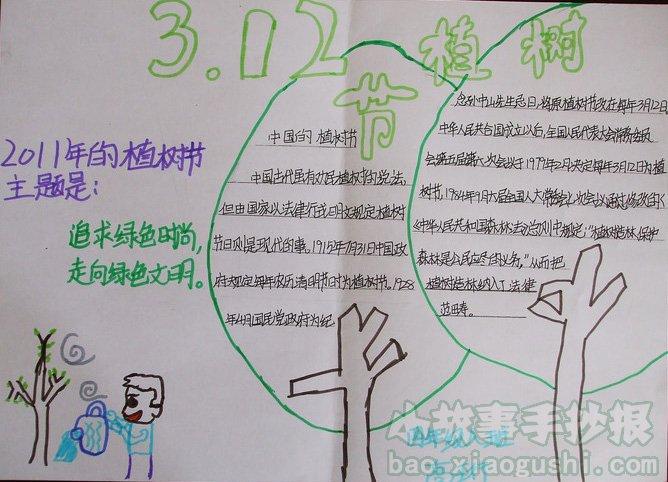 3.12植树
节
2011年的植树节
主题是:
追求绿色时尚,
走向绿色文明。
中国的植树节
中国古代虽有劝民植树的说法,
但由国家以法律行式明文规定植树
节日则是现代的事。1915年7月31日中国政
府规定每年农历清明节时为植树节。1928
年4月国民党政府为纪
念孙中山先生忌日,将原植树节改在每年3月12日
中华人民共和国成立以后,全国人民代表大会常务委员
会第五届第六次会议于1979年2月决定每年3月12日为植
树节,1984年9月六届全国人大常会七次会议通过修改的
《中华人民共和国森林法》总则中规定:"植树造林、保护
森林是公民应尽的义务,"从而把
植树造林纳入了法律
范畴。
四年级八班
小故事手抄报
bao.xiaogushi.com